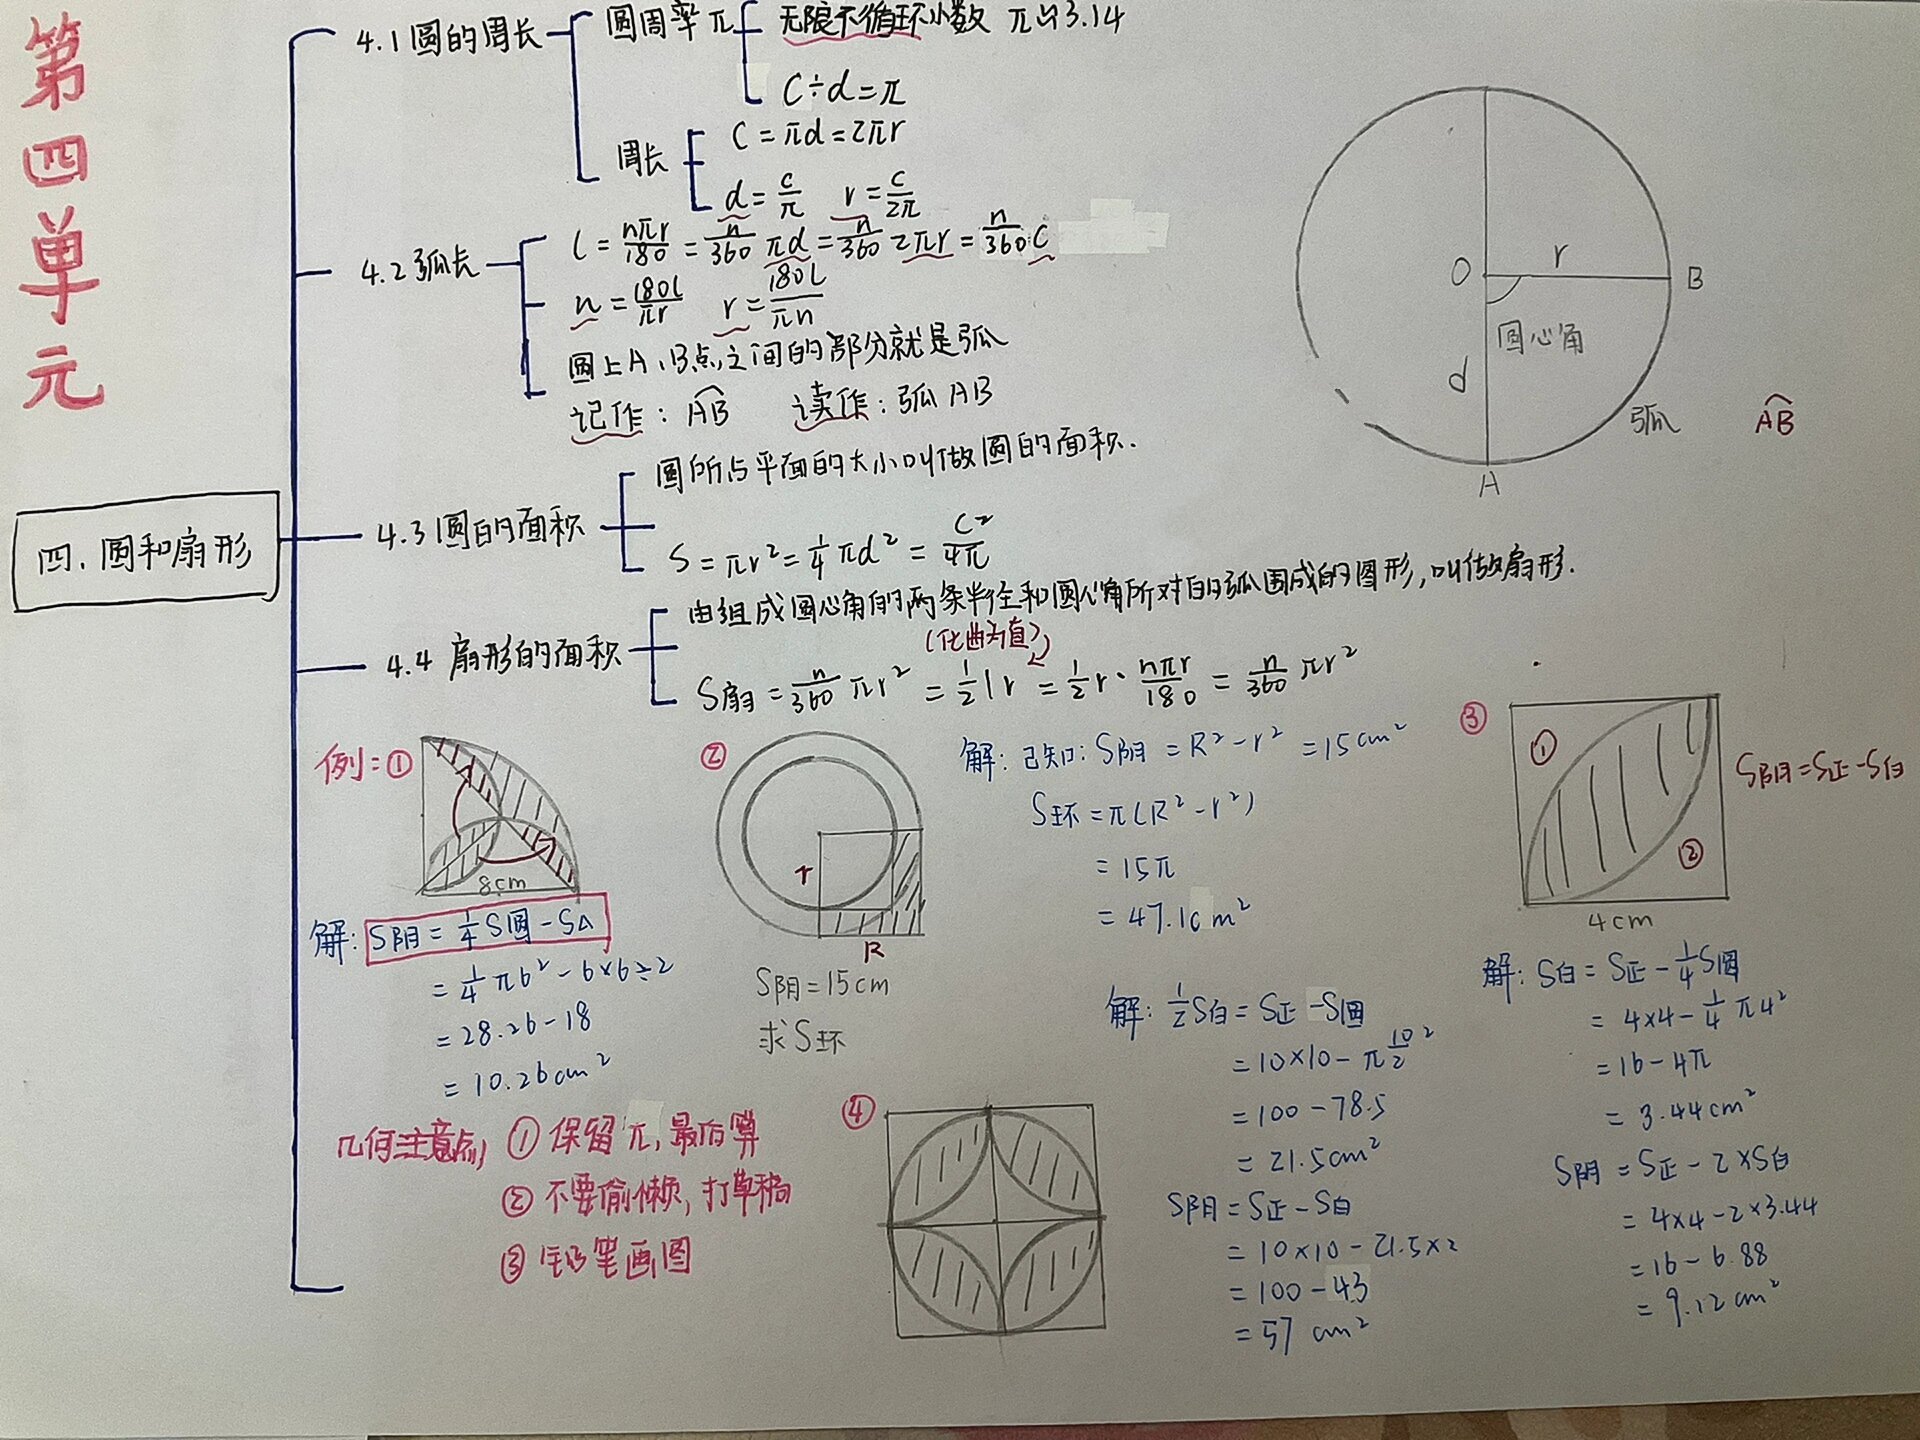 第四单元
四. 圆和扇形
4.1 圆的周长
圆周率 π
无限不循环小数 π≈3.14
C÷d=π
周长
C=πd=2πr
d=C/π r=C/2π
4.2 弧长
l=nπr/180=n/360 πd=n/360 2πr=n/360 C
n=180l/πr r=180l/πn
圆上A、B点之间的部分就是弧
记作：A͡B 读作：弧AB
O r B
圆心角
d
弧 A͡B
A
4.3 圆的面积
圆所占平面的大小叫做圆的面积.
S=πr²=1/4 πd²=C²/4π
4.4 扇形的面积
由组成圆心角的两条半径和圆心角所对的弧围成的图形,叫做扇形.
(化曲为直)
S扇=n/360 πr²=1/2 lr=1/2 r·nπr/180=n/360 πr²
例：①
8cm
解：S阴=1/4 S圆-S△
=1/4 π6²-6×6÷2
=28.26-18
=10.26cm²
②
r
R
S阴=15cm
求S环
解：已知：S阴=R²-r²=15cm²
S环=π(R²-r²)
=15π
=47.1cm²
③
①
②
4cm
S阴=S正-S白
解：S白=S正-1/4 S圆
=4×4-1/4 π4²
=16-4π
=3.44cm²
S阴=S正-2×S白
=4×4-2×3.44
=16-6.88
=9.12cm²
④
解：1/2 S白=S正-S圆
=10×10-π10/2²
=100-78.5
=21.5cm²
S阴=S正-S白
=10×10-21.5×2
=100-43
=57 cm²
几何注意点
①保留π,最后算
②不要偷懒,打草稿
③铅笔画图